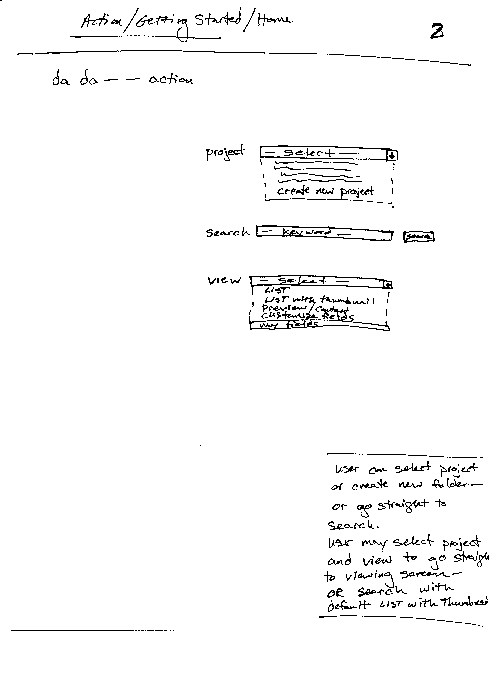 Action/Getting Started/Home
2
da da — — action
project — select —
create new project
search — keyword — search
view — select —
LIST
LIST with thumbnail
Preview/Contact
customize fields
my fields
User can select project
or create new folder—
or go straight to
search.
User may select project
and view to go straight
to viewing screen—
OR search with
default LIST with Thumbnail